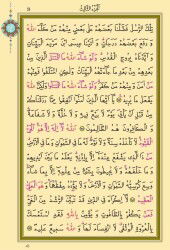 الجزء الثالث
تِلْكَ الرُّسُلُ فَضَّلْنَا بَعْضَهُمْ عَلَى بَعْضٍ مِنْهُمْ مَنْ كَلَّمَ اللّٰهُ
وَرَفَعَ بَعْضَهُمْ دَرَجَاتٍ وَاٰتَيْنَا عِيسَى ابْنَ مَرْيَمَ الْبَيِّنَاتِ
وَاَيَّدْنَاهُ بِرُوحِ الْقُدُسِ وَلَوْ شَاءَ اللّٰهُ مَا اقْتَتَلَ الَّذِينَ مِنْ
بَعْدِهِمْ مِنْ بَعْدِ مَا جَاءَتْهُمُ الْبَيِّنَاتُ وَلٰكِنِ اخْتَلَفُوا فَمِنْهُمْ
مَنْ اٰمَنَ وَمِنْهُمْ مَنْ كَفَرَ وَلَوْ شَاءَ اللّٰهُ مَا اقْتَتَلُوا وَلٰكِنَّ اللّٰهَ
يَفْعَلُ مَا يُرِيدُ يَا اَيُّهَا الَّذِينَ اٰمَنُوا اَنْفِقُوا مِمَّا رَزَقْنَاكُمْ
مِنْ قَبْلِ اَنْ يَأْتِيَ يَوْمٌ لَا بَيْعٌ فِيهِ وَلَا خُلَّةٌ وَلَا شَفَاعَةٌ
وَالْكَافِرُونَ هُمُ الظَّالِمُونَ اَللّٰهُ لَا اِلٰهَ اِلَّا هُوَ الْحَيُّ
الْقَيُّومُ لَا تَأْخُذُهُ سِنَةٌ وَلَا نَوْمٌ لَهُ مَا فِي السَّمٰوَاتِ وَمَا فِي الْاَرْضِ
مَنْ ذَا الَّذِي يَشْفَعُ عِنْدَهُ اِلَّا بِاِذْنِهِ يَعْلَمُ مَا بَيْنَ اَيْدِيهِمْ
وَمَا خَلْفَهُمْ وَلَا يُحِيطُونَ بِشَيْءٍ مِنْ عِلْمِهِ اِلَّا بِمَا شَاءَ
وَسِعَ كُرْسِيُّهُ السَّمٰوَاتِ وَالْاَرْضَ وَلَا يَؤُدُهُ حِفْظُهُمَا وَهُوَ الْعَلِيُّ
الْعَظِيمُ لَا اِكْرَاهَ فِي الدِّينِ قَدْ تَبَيَّنَ الرُّشْدُ مِنَ الْغَيِّ
فَمَنْ يَكْفُرْ بِالطَّاغُوتِ وَيُؤْمِنْ بِاللّٰهِ فَقَدِ اسْتَمْسَكَ
بِالْعُرْوَةِ الْوُثْقٰى لَا انْفِصَامَ لَهَا وَاللّٰهُ سَمِيعٌ عَلِيمٌ